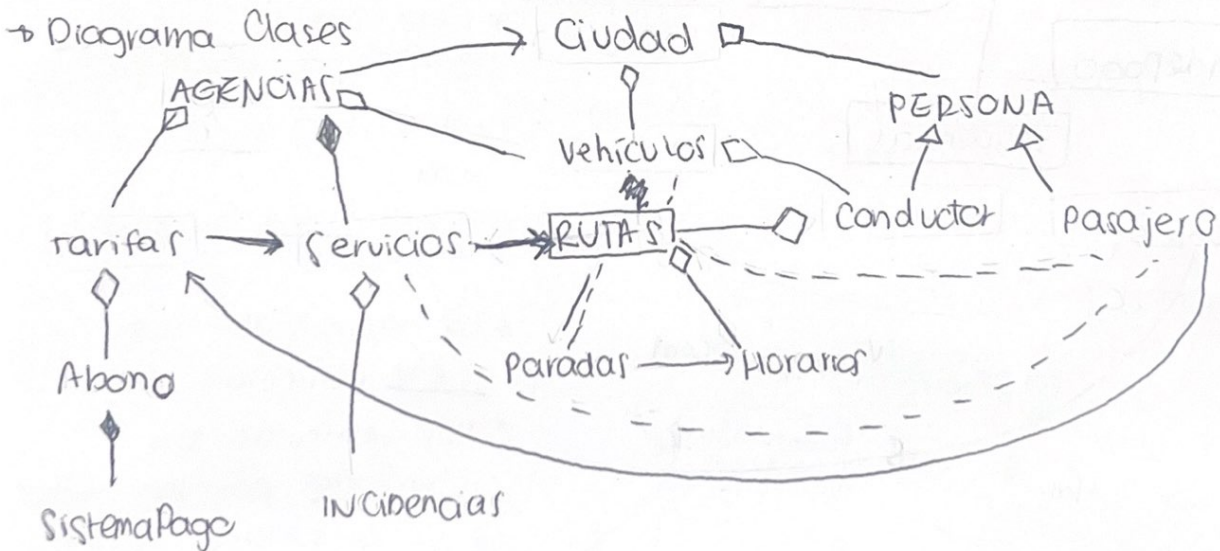 → Diagrama Clases
Ciudad
AGENCIAS
PERSONA
Vehículos
Tarifas
Servicios
RUTAS
Conductor
Pasajero
Paradas
Horarios
Abono
INCIDENCIAS
SistemaPago